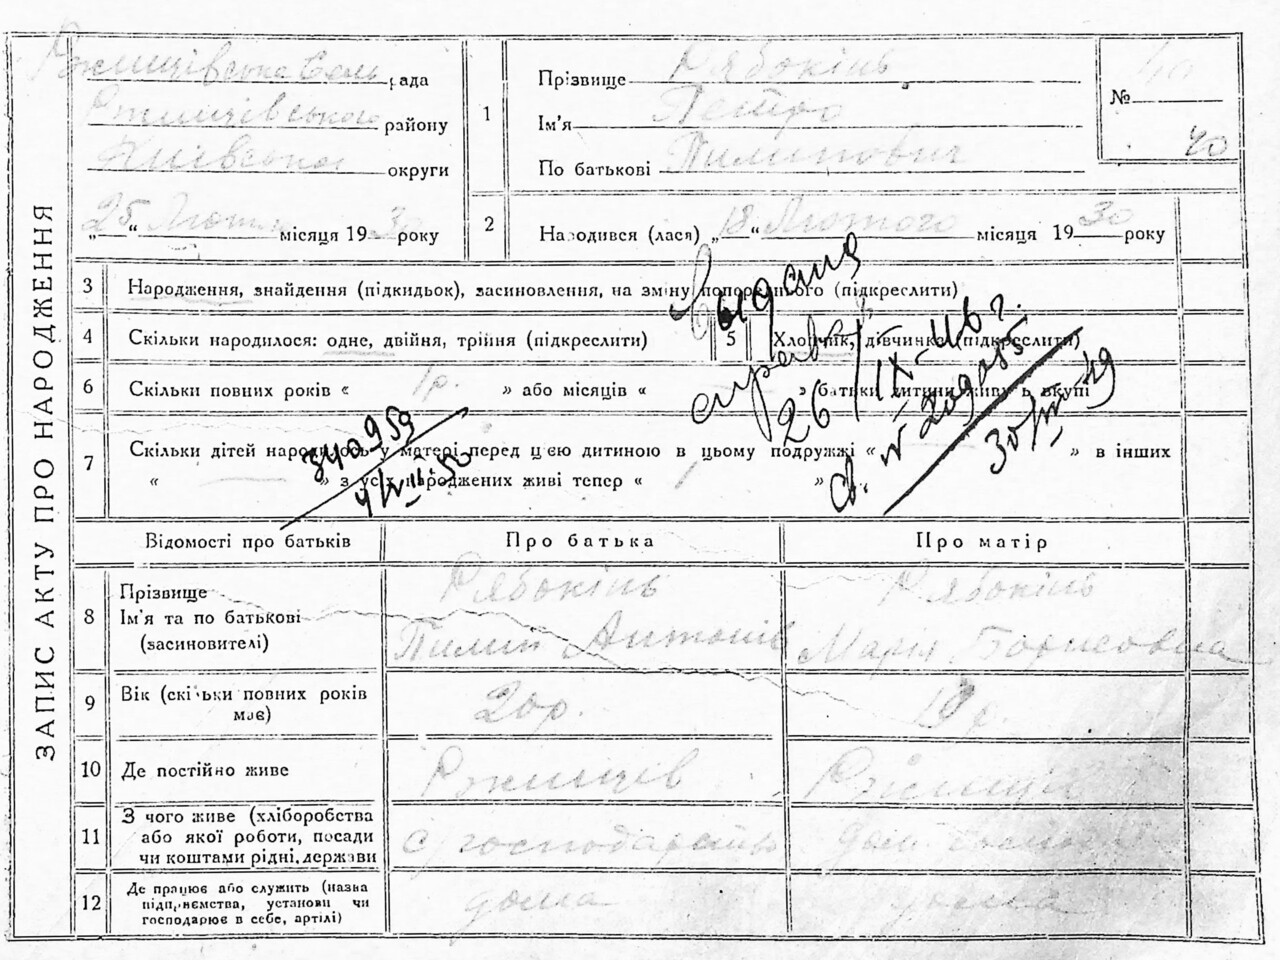 ЗАПИС АКТУ ПРО НАРОДЖЕННЯ
Ржищівська Сель рада
Ржищівського району
Київська округи
„25“ Лютого місяця 1930 року
1
Прізвище Рябокінь
Ім'я Петро
По батькові Пилипович
№ 40
40
2
Народився (лася) „18“ Лютого місяця 1930 року
3 Народження, знайдення (підкидьок), засиновлення, на зміну попереднього (підкреслити)
4 Скільки народилося: одне, двійня, трійня (підкреслити)
5 Хлопчик, дівчинка (підкреслити)
6 Скільки повних років « 1р. » або місяців « » батьки дитини живуть вкупі
7 Скільки дітей народилось у матері перед цією дитиною в цьому подружжі « » в інших
« — » з усіх народжених живі тепер « »
выдана
справка
26/IX-46 г.
св. № 209055
30/III-49
340959
Відомості про батьків Про батька Про матір
8 Прізвище
Ім'я та по батькові
(засиновителі)
Рябокінь
Пилип Антонів
Рябокінь
Марія Борисовна
9 Вік (скільки повних років має)
20р.
19р.
10 Де постійно живе
Ржищів
Ржищів
11 З чого живе (хліборобства
або якої роботи, посади
чи коштами рідні, держави
С господарсть
дом. господ
12 Де працює або служить (назва
підприємства, установи чи
господарює в себе, артілі)
дома
дома